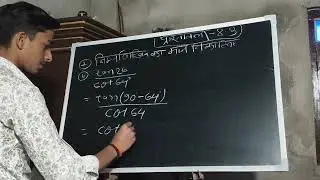 प्रश्नावली - 8.3
① निम्नलिखित का मान निकालिए
① tan 26
cot 64°
= tan(90-64°)
cot 64
= cot